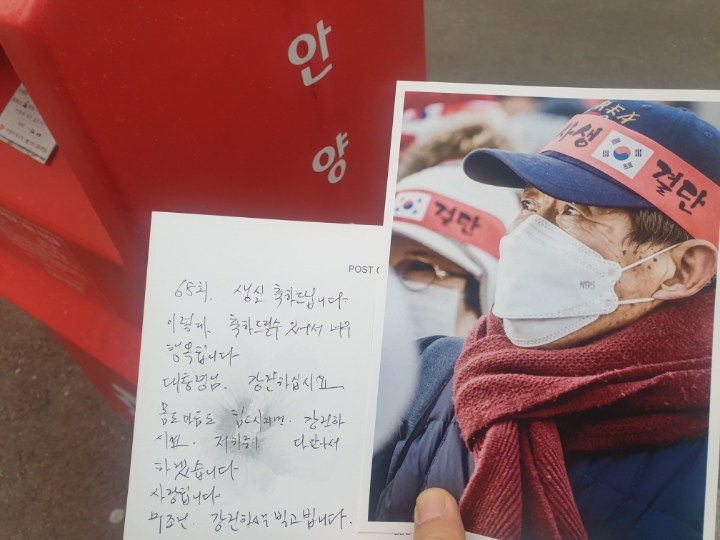 안양
REA
사생 결단
결단
N95
POST
65회. 생신 축하드립니다
이렇게 축하드릴수 있어서 너무
행복합니다
대통령님. 강건하십시요
몸도마음도 힘드시지만. 강건하
시요. 저희들이
하겠습니다
사랑합니다
강건하심을 빌고 빕니다.